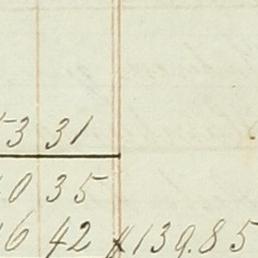 53 31
0 35
16 42 $139.85